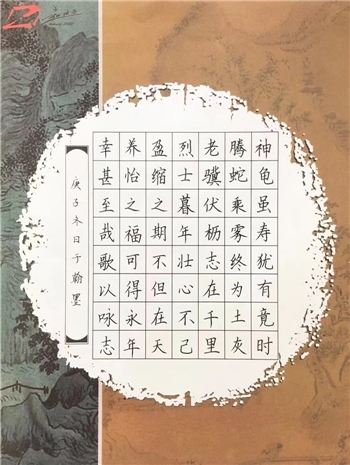 神龟虽寿犹有竟时
腾蛇乘雾终为土灰
老骥伏枥志在千里
烈士暮年壮心不己
盈缩之期不但在天
养怡之福可得永年
幸甚至哉歌以咏志
庚子冬日于翰墨